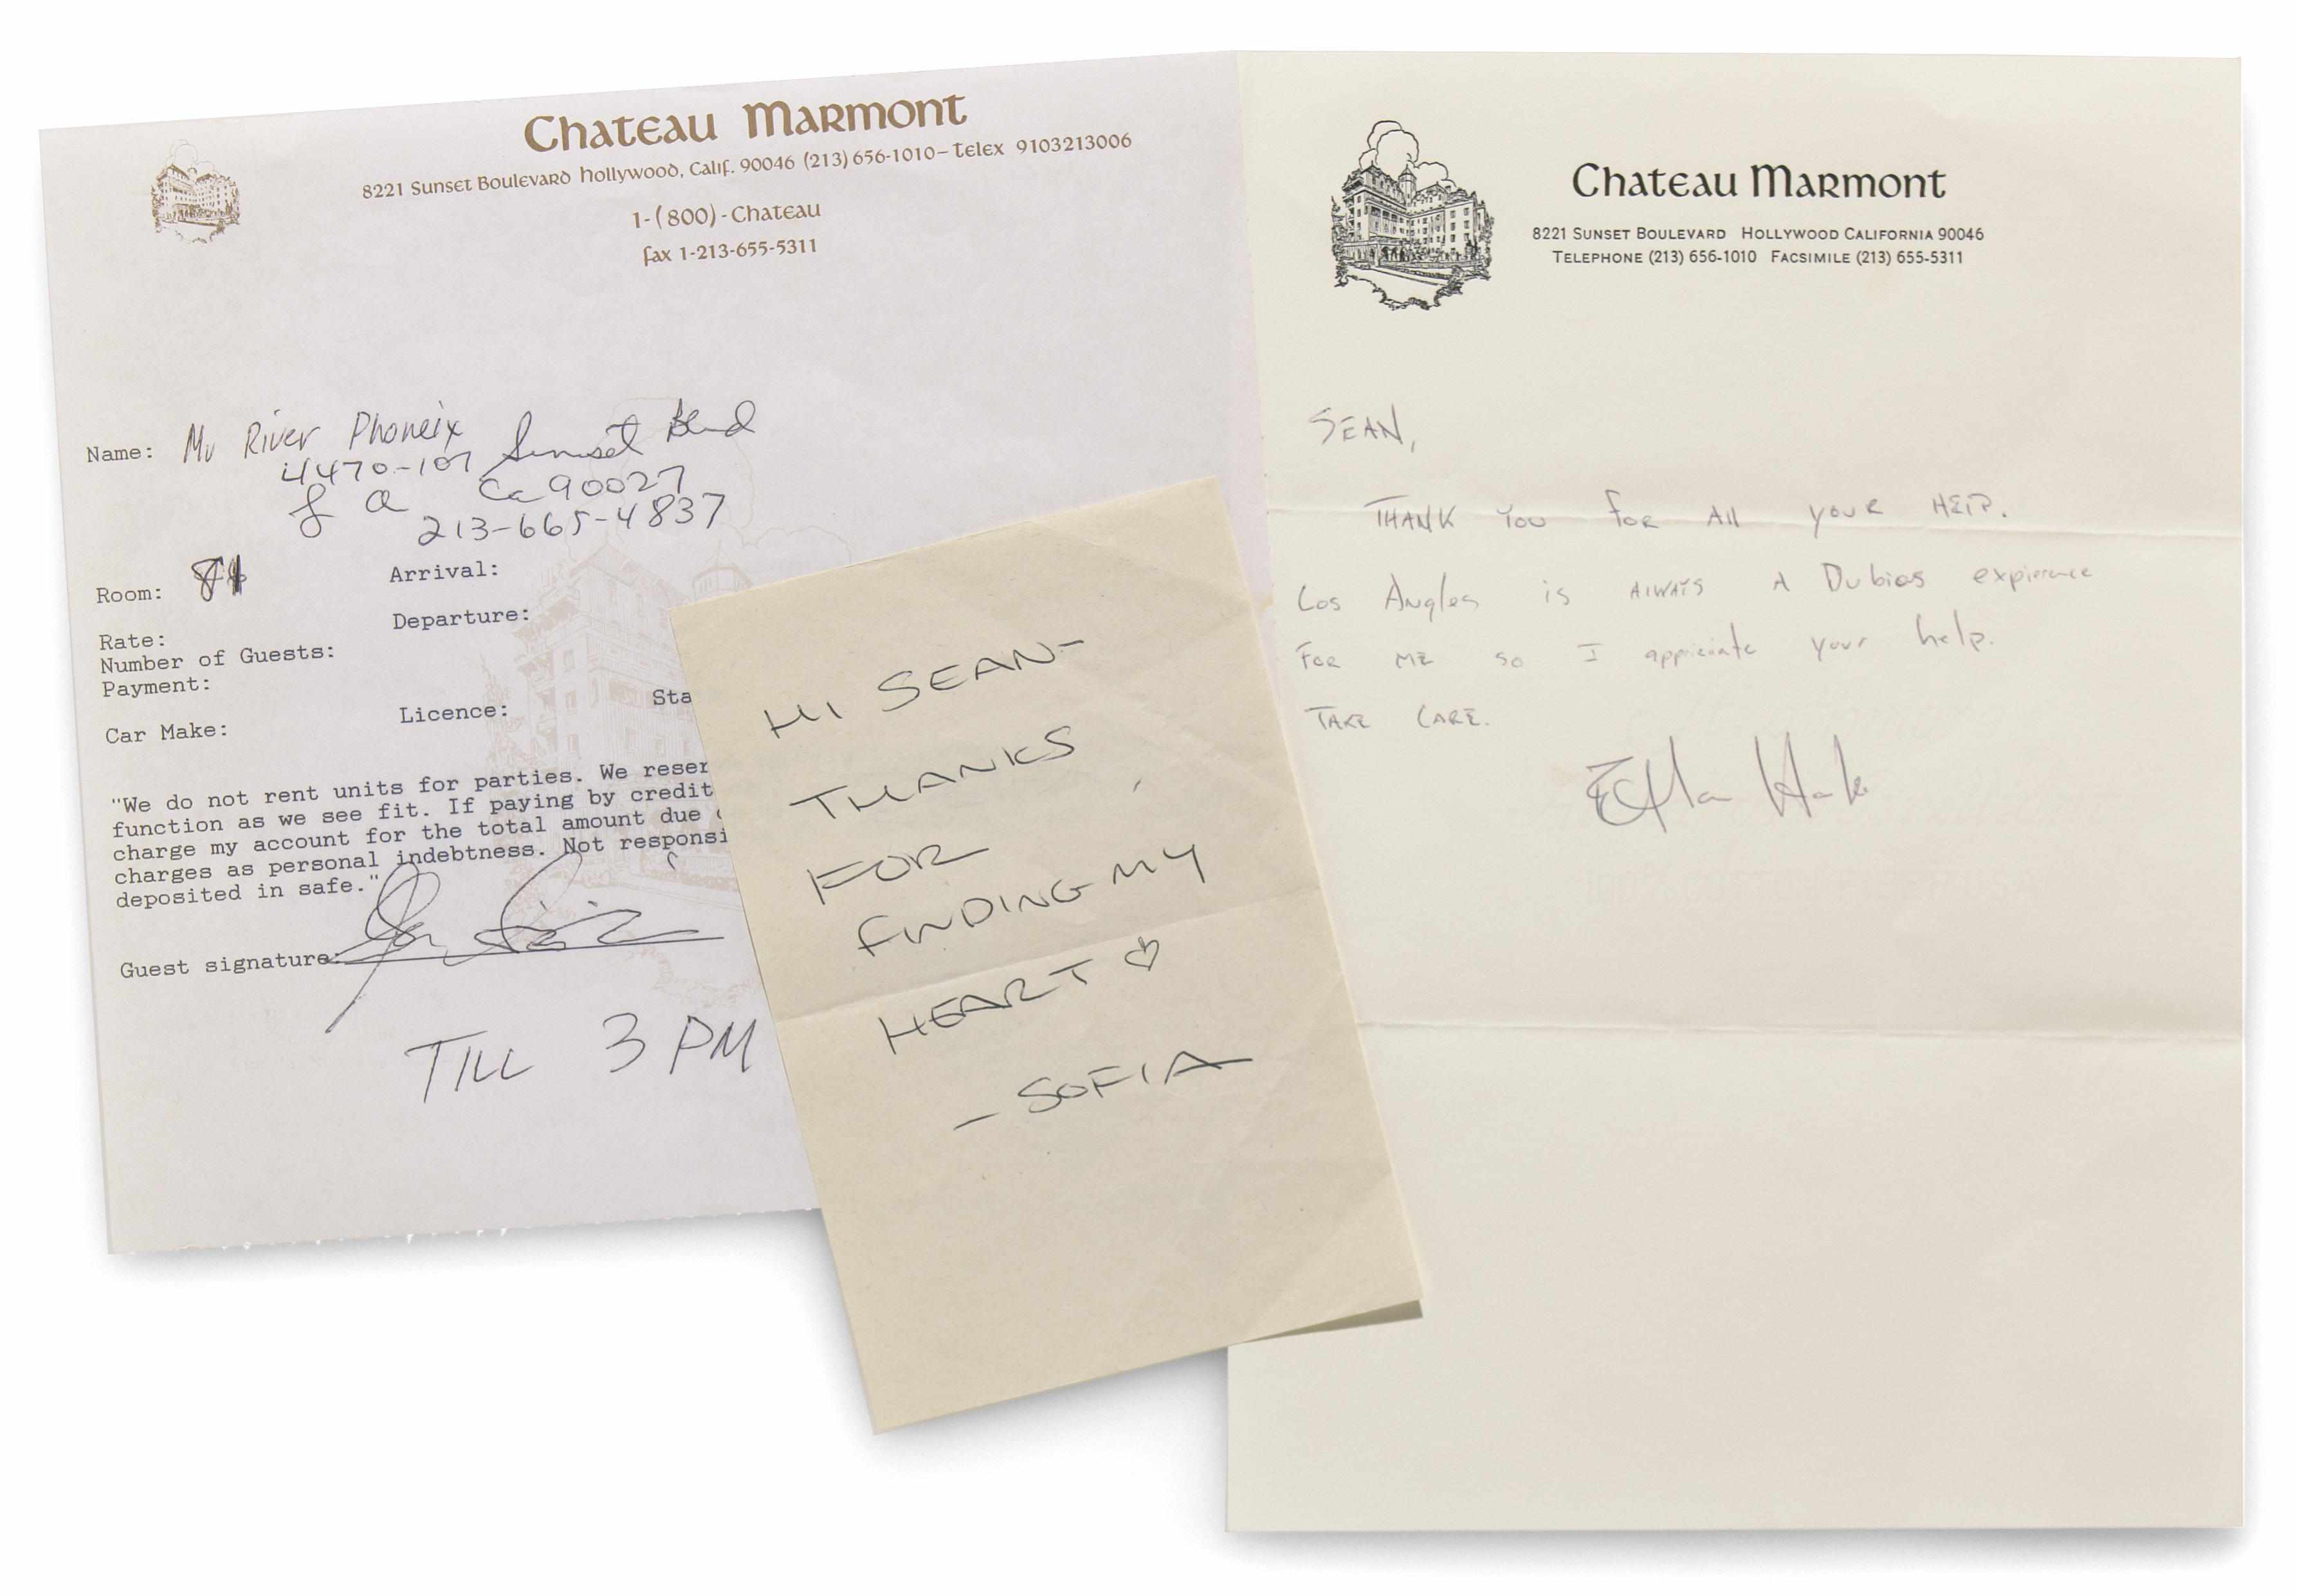 Chateau Marmont
8221 Sunset Boulevard Hollywood, Calif. 90046 (213) 656-1010 – Telex 9103213006
1-(800)-Chateau
Fax 1-213-655-5311
Name: Mr River Phoneix
4470-107 Sunset Blvd
L A Ca 90027
213-665-4837
Room: Arrival:
Departure:
Rate:
Number of Guests:
Payment:
Car Make: Licence: Sta
"We do not rent units for parties. We reser
function as we see fit. If paying by credit
charge my account for the total amount due
charges as personal indebtness. Not responsi
deposited in safe."
Guest signature:
TILL 3 PM
HI SEAN-
THANKS
FOR
FINDING MY
HEART ♡
– SOFIA
Chateau Marmont
8221 Sunset Boulevard Hollywood California 90046
Telephone (213) 656-1010 Facsimile (213) 655-5311
SEAN,
THANK YOU FOR All YOUR HElP.
Los Angles is AlWAYS A Dubios expierence
FOR ME so I appriciate your help.
TAKE CARE.
Ethan Hawke